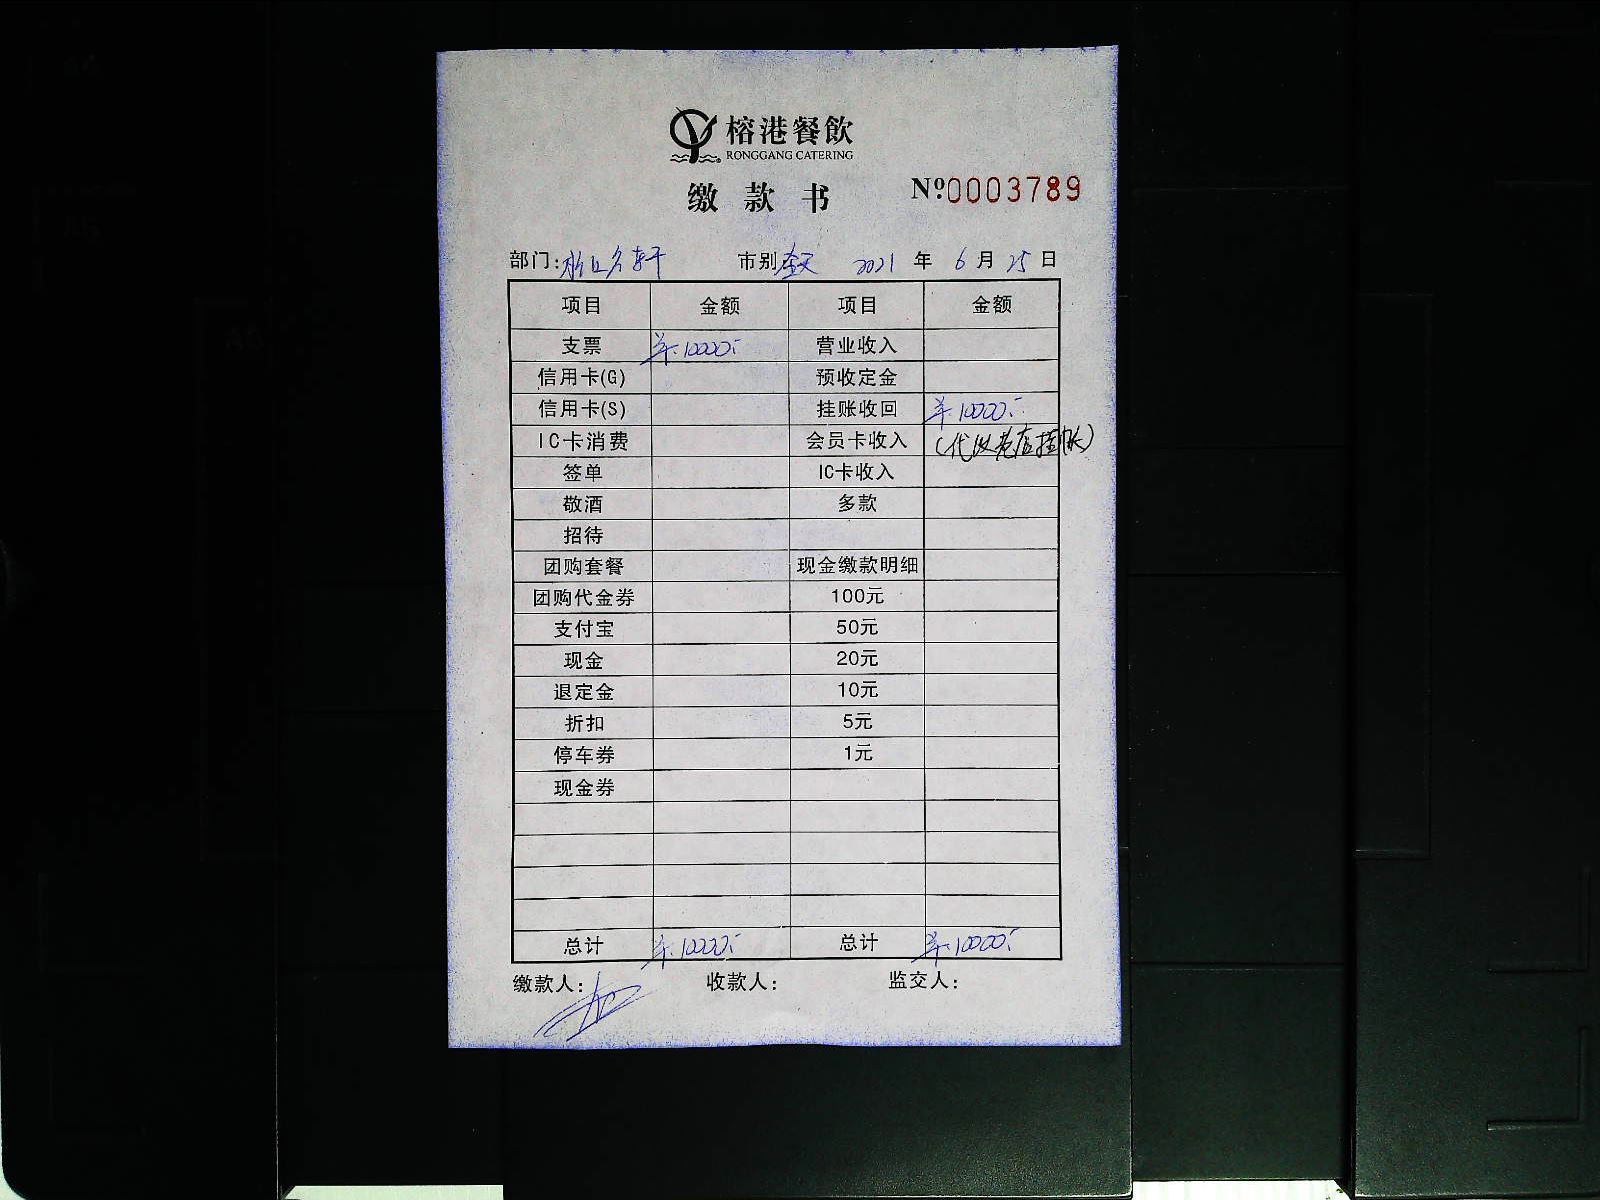 榕港餐飲
RONGGANG CATERING
缴款书 Nº:0003789
部门: 市别:全天 2021年6月25日
项目 金额 项目 金额
支票 ¥10000.- 营业收入
信用卡(G) 预收定金
信用卡(S) 挂账收回 ¥10000.-
IC卡消费 会员卡收入 (代收老店挂帐)
签单 IC卡收入
敬酒 多款
招待
团购套餐 现金缴款明细
团购代金券 100元
支付宝 50元
现金 20元
退定金 10元
折扣 5元
停车券 1元
现金券
总计 ¥10000.- 总计 ¥10000.-
缴款人: 收款人: 监交人: